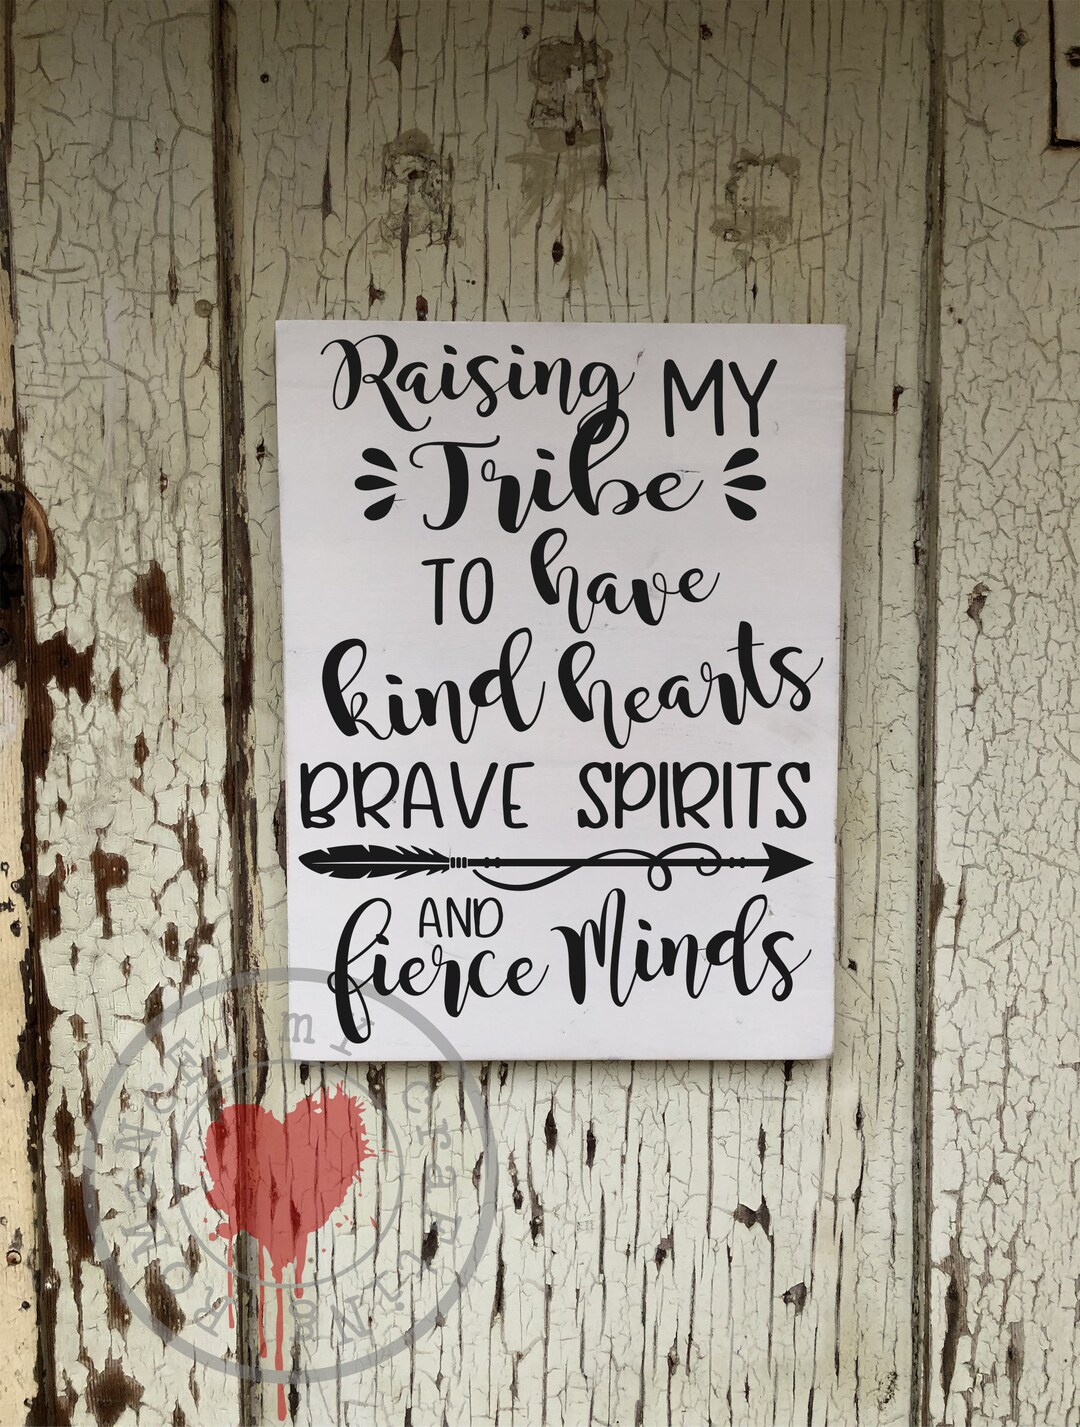 Raising MY
Tribe
TO have
kind hearts
BRAVE SPIRITS
AND
fierce Minds
my CraftiNg RoMaNCE.